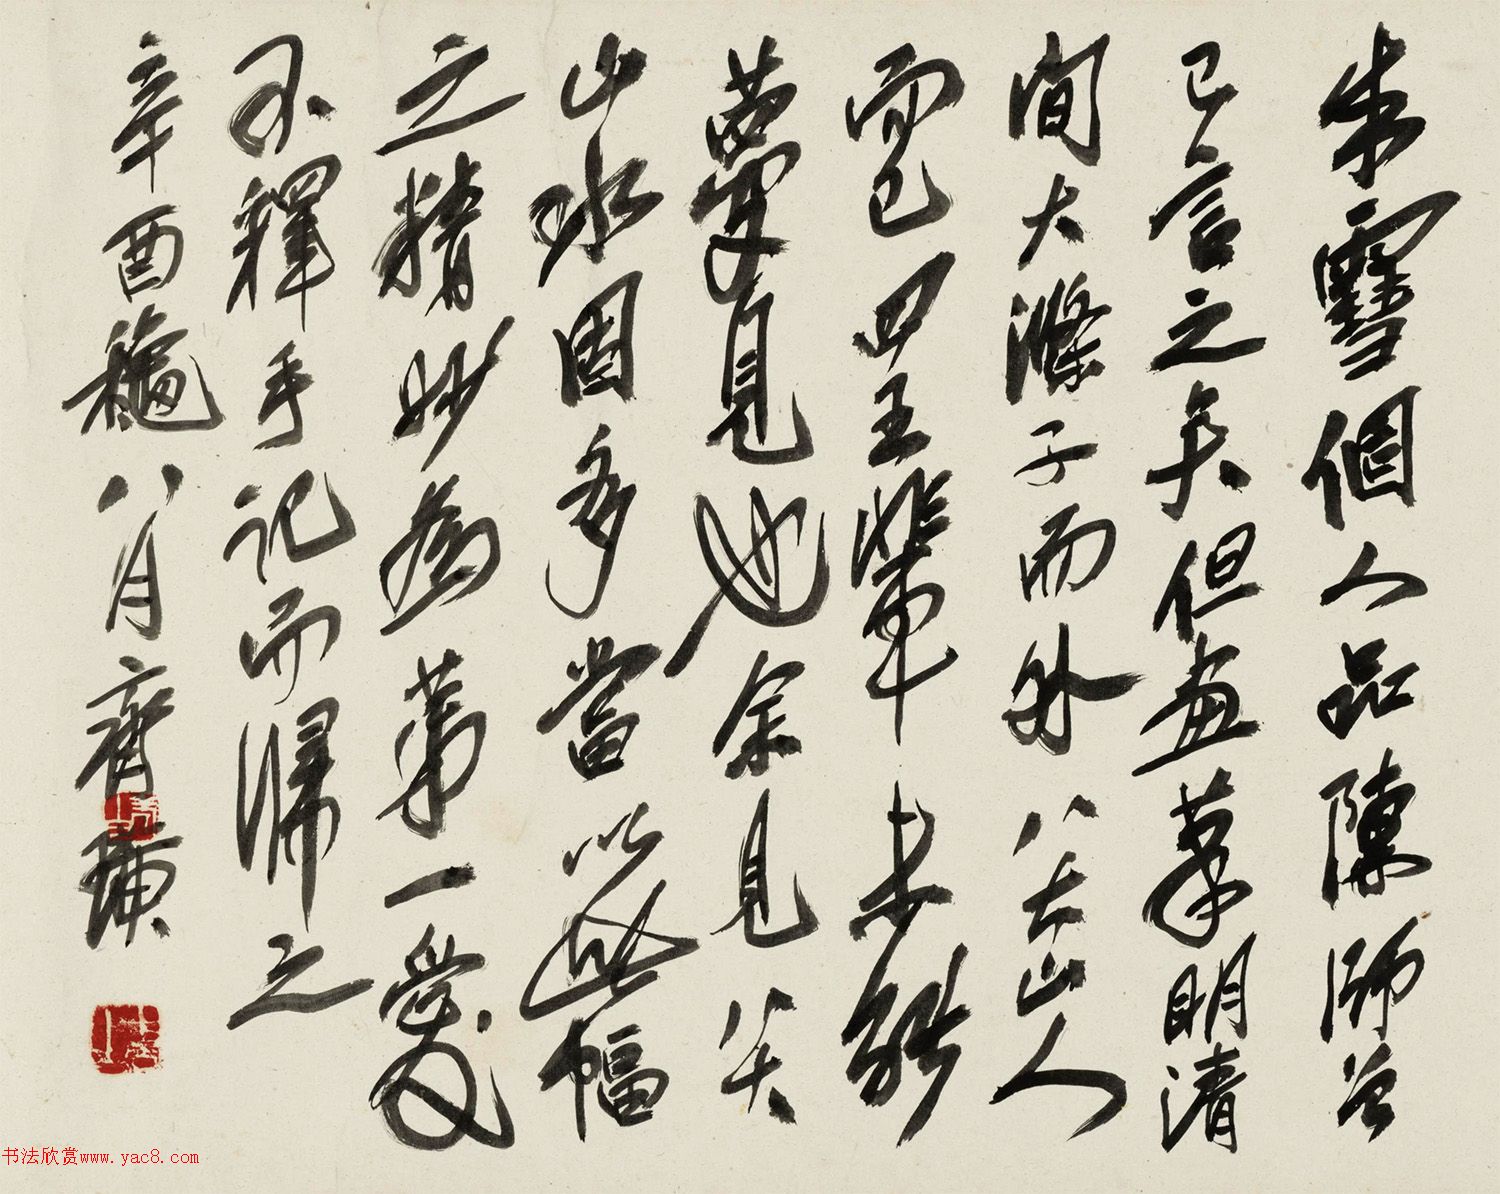 朱雪個人品陳師曾
已言之矣但畫筆明清
間大滌子而外八大山人
而已四王輩未能
夢見也余見八大
山水固多當以此幅
之精妙為第一愛
不釋手記而歸之
辛酉穐八月齊璜
书法欣赏www.yac8.com